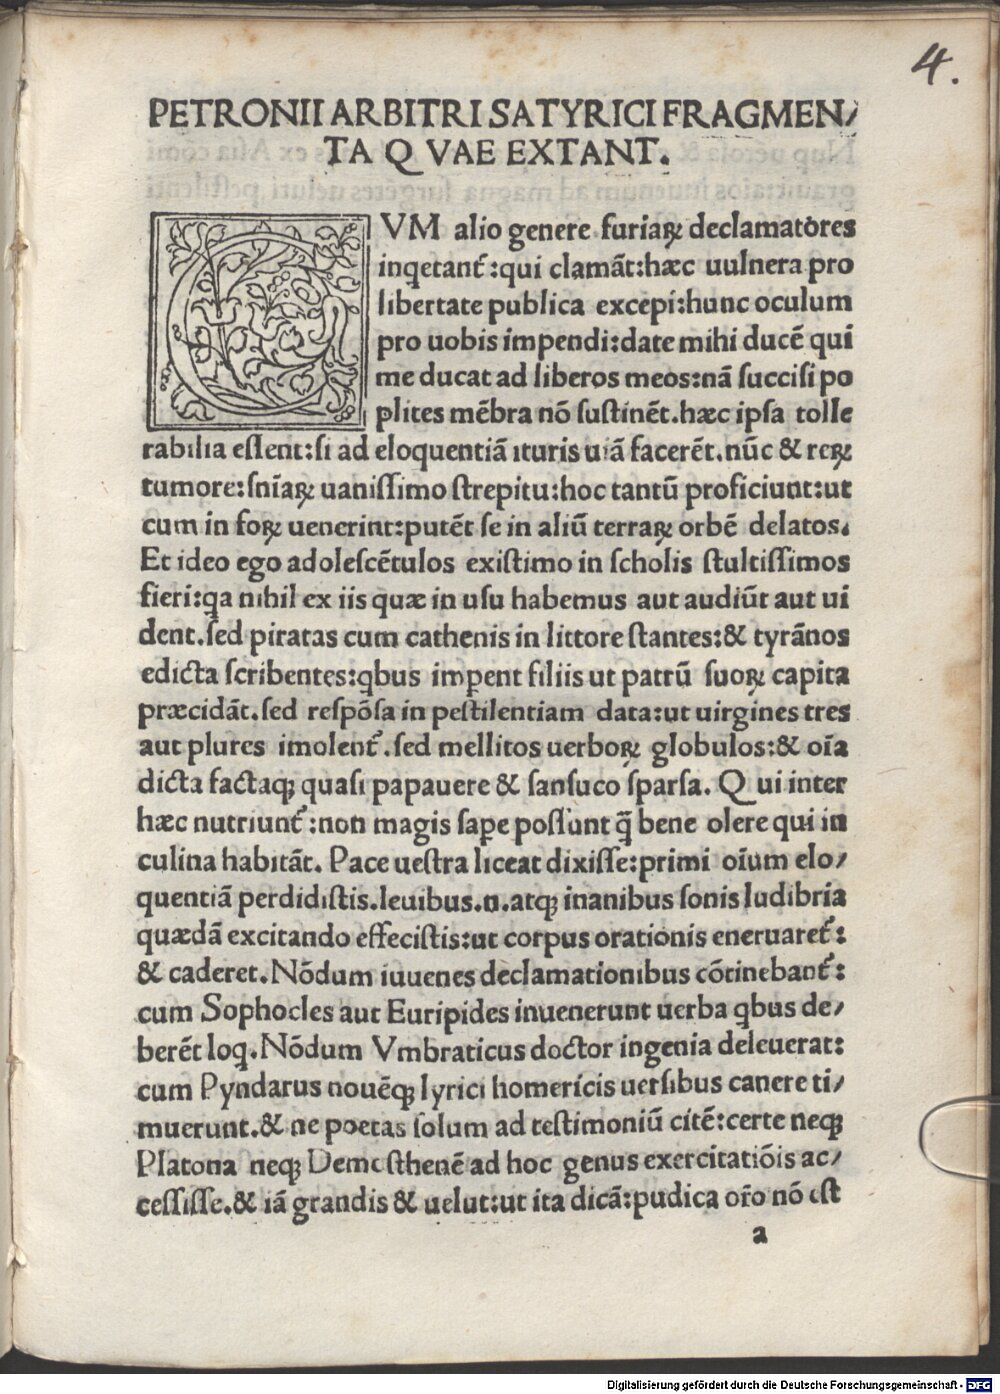 4.
PETRONII ARBITRI SATYRICI FRAGMEN/
TA Q VAE EXTANT.
CVM alio genere furiaꝝ declamatores
inqetant᷑:qui clamāt:hæc uulnera pro
libertate publica excepi:hunc oculum
pro uobis impendi:date mihi ducē qui
me ducat ad liberos meos:nā succisi po
plites mēbra nō sustinēt.hæc ipsa tolle
rabilia essent:si ad eloquentiā ituris uiā facerēt.nūc & reꝝ
tumore:sniāꝝ uanissimo strepitu:hoc tantū proficiunt:ut
cum in foꝝ uenerint:putēt se in aliū terraꝝ orbē delatos.
Et ideo ego adolescētulos existimo in scholis stultissimos
fieri:qa nihil ex iis quæ in usu habemus aut audiūt aut ui
dent.sed piratas cum cathenis in littore stantes:& tyrānos
edicta scribentes:qbus imꝑent filiis ut patrū suoꝝ capita
præcidāt.sed respōsa in pestilentiam data:ut uirgines tres
aut plures imolent᷑.sed mellitos uerboꝝ globulos:& oīa
dicta factaqꝫ quasi papauere & sansuco sparsa. Q ui inter
hæc nutriunt᷑:non magis saꝑe possunt q̄ bene olere qui in
culina habitāt. Pace uestra liceat dixisse:primi oīum elo/
quentiā perdidistis.leuibus.n.atqꝫ inanibus sonis ludibria
quædā excitando effecistis:ut corpus orationis eneruaret᷑:
& caderet.Nōdum iuuenes declamationibus cōtinebant᷑:
cum Sophocles aut Euripides inuenerunt uerba qbus de/
berēt loq.Nōdum Vmbraticus doctor ingenia deleuerat:
cum Pyndarus nouēqꝫ lyrici homericis uersibus canere ti/
muerunt.& ne poetas solum ad testimoniū citē:certe neqꝫ
Platona neqꝫ Demosthenē ad hoc genus exercitatiōis ac/
cessisse.& iā grandis & uelut:ut ita dicā:pudica or̄o nō est
a
Digitalisierung gefördert durch die Deutsche Forschungsgemeinschaft - DFG